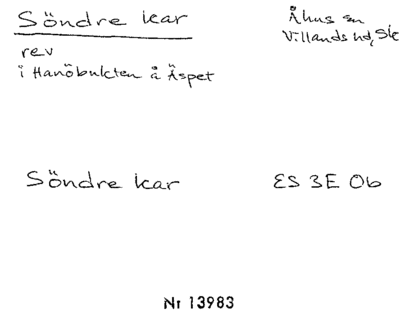 Söndre kar
Åhus sn
Villands hd, Sk
rev
i Hanöbukten å Äspet
Söndre kar
ES 3E 0b
Nr 13983